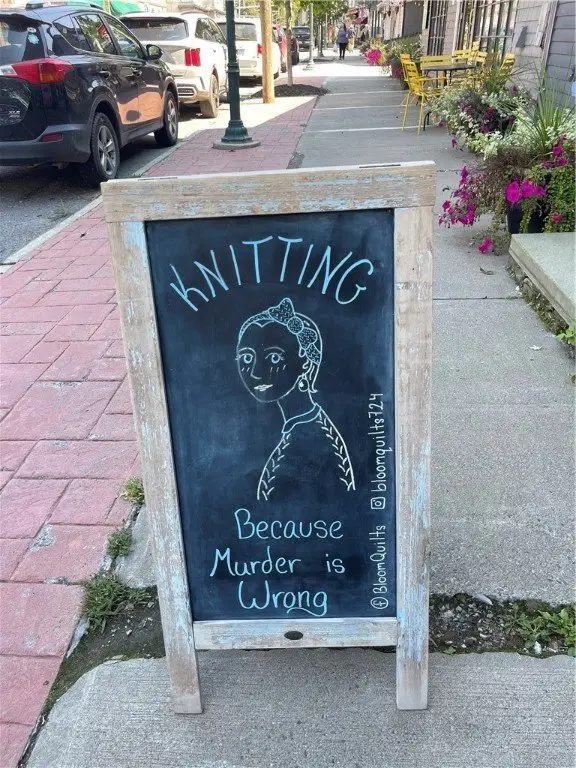 KNITTING
Because
Murder is
Wrong
BloomQuilts
bloomquilts724